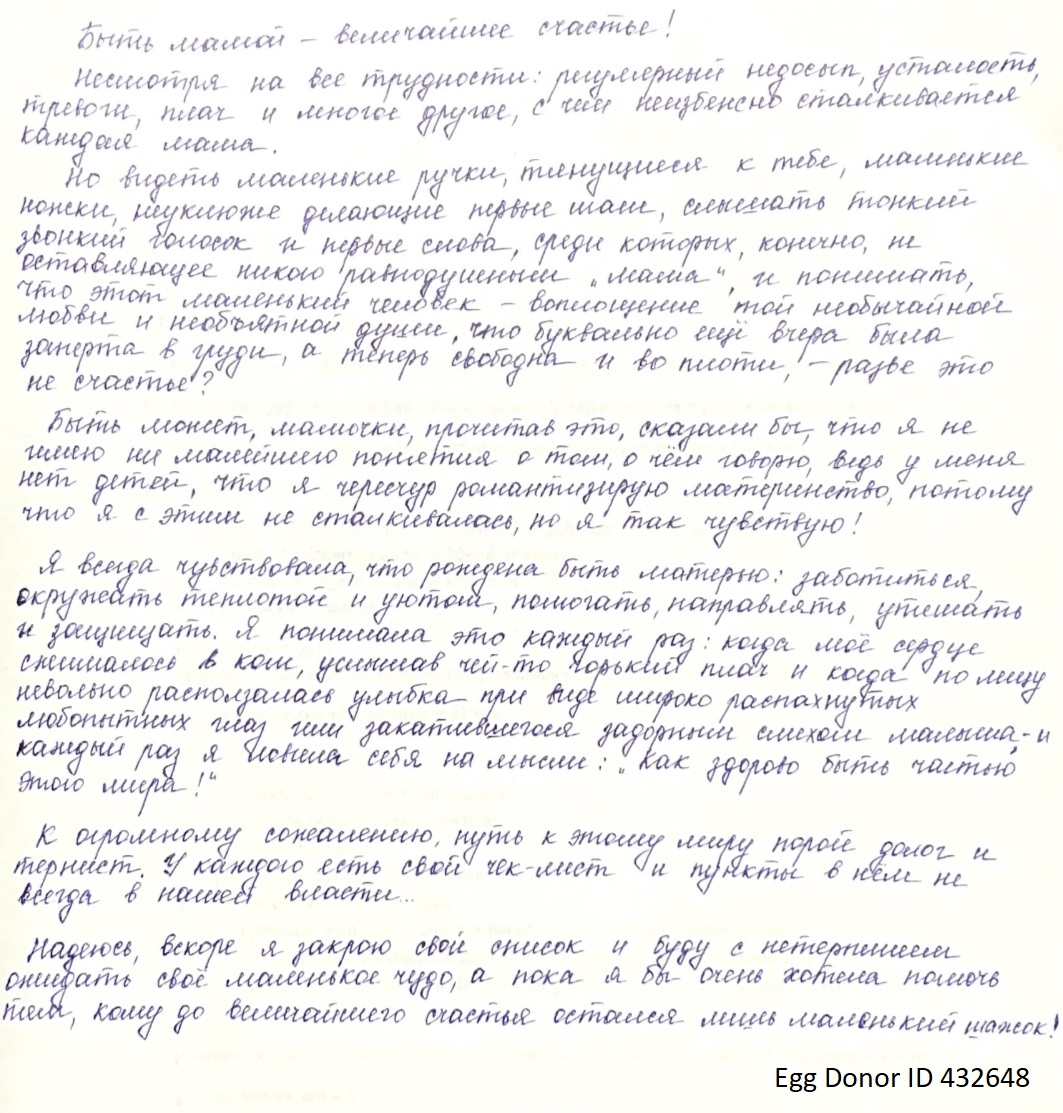 Быть мамой – величайшее счастье!
Несмотря на все трудности: регулярный недосып, усталость,
тревоги, плач и многое другое, с чем неизбежно сталкивается
каждая мама.
Но видеть маленькие ручки, тянущиеся к тебе, маленькие
ножки, неуклюже делающие первые шаги, слышать тонкий
звонкий голосок и первые слова, среди которых, конечно, не
оставляющее никого равнодушным „мама“, и понимать,
что этот маленький человек – воплощение той необычайной
любви и необъятной души, что буквально ещё вчера была
заперта в груди, а теперь свободна и во плоти, – разве это
не счастье?
Быть может, мамочки, прочитав это, сказали бы, что я не
имею ни малейшего понятия о том, о чём говорю, ведь у меня
нет детей, что я чересчур романтизирую материнство, потому
что я с этим не сталкивалась, но я так чувствую!
Я всегда чувствовала, что рождена быть матерью: заботиться,
окружать теплотой и уютом, помогать, направлять, утешать
и защищать. Я понимала это каждый раз: когда моё сердце
сжималось в ком, услышав чей-то горький плач и когда по лицу
невольно расползалась улыбка при виде широко распахнутых
любопытных глаз или закатившегося задорным смехом малыша, – и
каждый раз я ловила себя на мысли: „Как здорово быть частью
этого мира!“
К огромному сожалению, путь к этому миру порой долог и
тернист. У каждого есть свой чек-лист и пункты в нём не
всегда в нашей власти...
Надеюсь, вскоре я закрою свой список и буду с нетерпением
ожидать своё маленькое чудо, а пока я бы очень хотела помочь
тем, кому до величайшего счастья остался лишь маленький шажок!
Egg Donor ID 432648